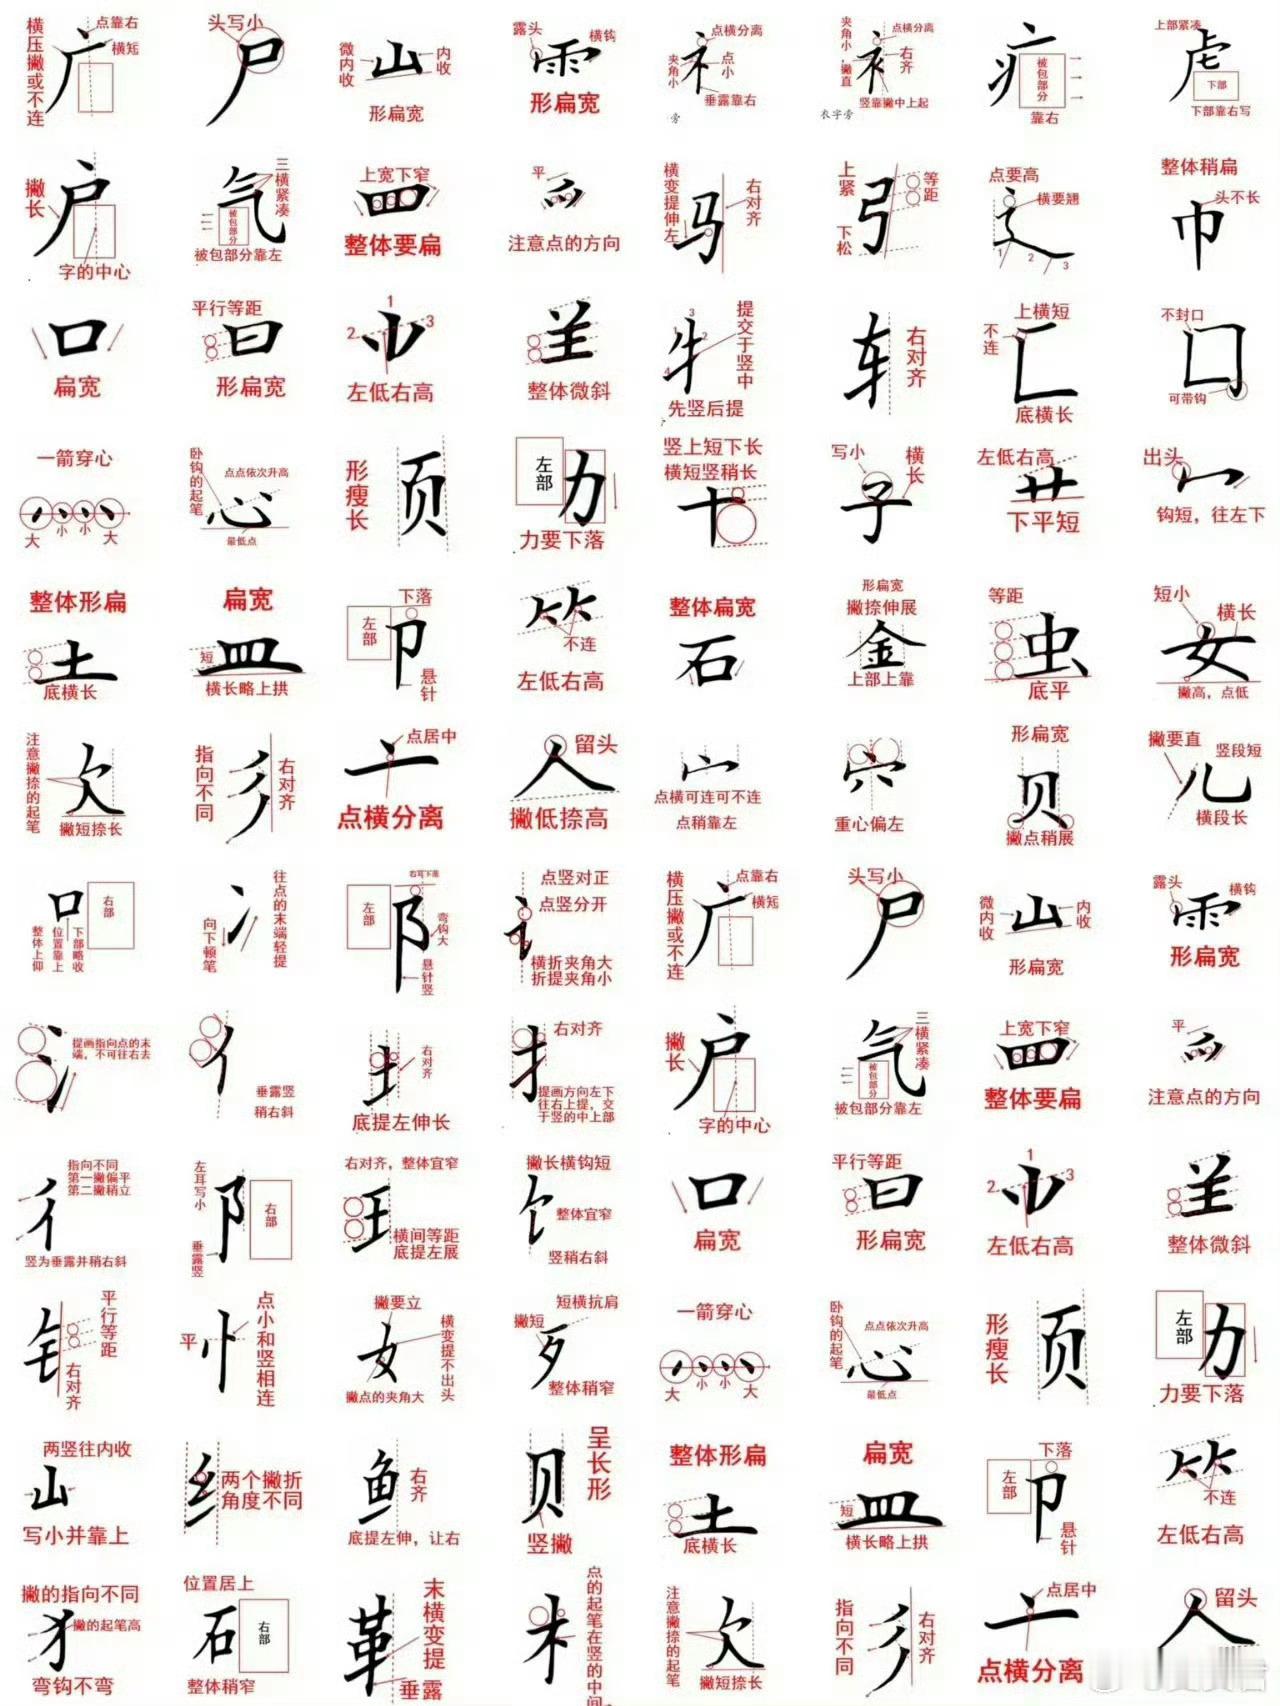 横压撇或不连
点靠右
横短
广
头写小
尸
微内收
山
内收
形扁宽
露头
横钩
形扁宽
点横分离
夹角小
点小
礻
垂露靠右
旁
夹角小，撇直
点横分离
右齐
衤
竖靠撇中上起
衣字旁
疒
被包部分
靠右
上部紧凑
虍
下部
下部靠右写
撇长
户
字的中心
三横紧凑
气
被包部分
被包部分靠左
上宽下窄
罒
整体要扁
平
爫
注意点的方向
横变提伸左
马
右对齐
上紧
下松
引
等距
点要高
横要翘
辶
1
2
3
整体稍扁
头不长
巾
口
扁宽
平行等距
曰
形扁宽
1
2
3
左低右高
整体微斜
提交于竖中
3
1
2
4
先竖后提
车
右对齐
上横短
不连
匚
底横长
不封口
可带钩
一箭穿心
灬
大
小
小
大
卧钩的起笔
点点依次升高
心
最低点
形瘦长
页
左部
力
力要下落
竖上短下长
横短竖稍长
十
写小
横长
子
左低右高
艹
下平短
出头
冖
钩短，往左下
整体形扁
土
底横长
扁宽
短
皿
横长略上拱
下落
左部
卩
悬针
不连
左低右高
整体扁宽
石
形扁宽
撇捺伸展
金
上部上靠
等距
虫
底平
短小
横长
女
撇高，点低
注意撇捺的起笔
欠
撇短捺长
指向不同
彡
右对齐
点居中
亠
点横分离
留头
人
撇低捺高
宀
点横可连可不连
点稍靠左
穴
重心偏左
形扁宽
贝
撇点稍展
撇要直
竖段短
儿
横段长
口
右部
整体上仰
位置靠上
下部略收
冫
往点的末端轻提
向下顿笔
右耳下落
左部
阝
弯钩大
悬针竖
点竖对正
点竖分开
讠
横折夹角大
折提夹角小
横压撇或不连
点靠右
横短
广
头写小
尸
微内收
山
内收
形扁宽
露头
横钩
形扁宽
氵
提画指向点的末
端，不可往右去
亻
垂露竖
稍右斜
右对齐
底提左伸长
右对齐
扌
提画方向左下
往右上提，交
于竖的中上部
撇长
户
字的中心
三横紧凑
气
被包部分
被包部分靠左
上宽下窄
罒
整体要扁
平
爫
注意点的方向
指向不同
第一撇偏平
第二撇稍立
彳
竖为垂露并稍右斜
左耳写小
阝
右部
垂露竖
右对齐，整体宜窄
王
横间等距
底提左展
撇长横钩短
饣
整体宜窄
竖稍右斜
口
扁宽
平行等距
曰
形扁宽
1
2
3
左低右高
整体微斜
钅
平行等距
右对齐
平
忄
点小和竖相连
撇要立
女
横变提不出头
撇点的夹角大
短横抗肩
撇短
歹
整体稍窄
一箭穿心
灬
大
小
小
大
卧钩的起笔
点点依次升高
心
最低点
形瘦长
页
左部
力
力要下落
两竖往内收
山
写小并靠上
纟
两个撇折
角度不同
鱼
右齐
底提左伸，让右
贝
呈长形
竖撇
整体形扁
土
底横长
扁宽
短
皿
横长略上拱
下落
左部
卩
悬针
不连
左低右高
撇的指向不同
犭
撇的起笔高
弯钩不弯
位置居上
石
右部
整体稍窄
革
末横变提
垂露
点的起笔在竖的中间
注意撇捺的起笔
欠
撇短捺长
指向不同
彡
右对齐
点居中
亠
点横分离
留头
人